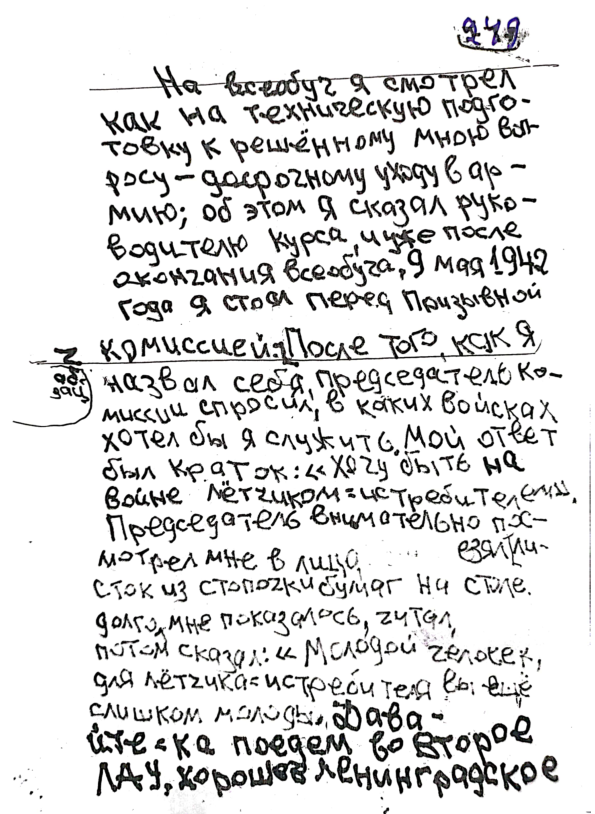 249
На всеобуч я смотрел
как на техническую подго-
товку к решённому мною воп-
росу – досрочному уходу в ар-
мию; об этом я сказал руко-
водителю курса, и уже после
окончания всеобуча, 9 мая 1942
года я стоял перед Призывной
комиссией. [После того, как я
Z
аб-
зац
назвал себя, председатель ко-
миссии спросил, в каких войсках
хотел бы я служить. Мой ответ
был краток: «Хочу быть на
войне лётчиком=истребителем».
Председатель внимательно пос-
мотрел мне в лицо, взял ли-
сток из стопочки бумаг на столе.
долго, мне показалось, читал,
потом сказал: «Молодой человек,
для лётчика=истребителя вы ещё
слишком молоды. Дава-
йте-ка поедем во Второе
ЛАУ, хорошее Ленинградское